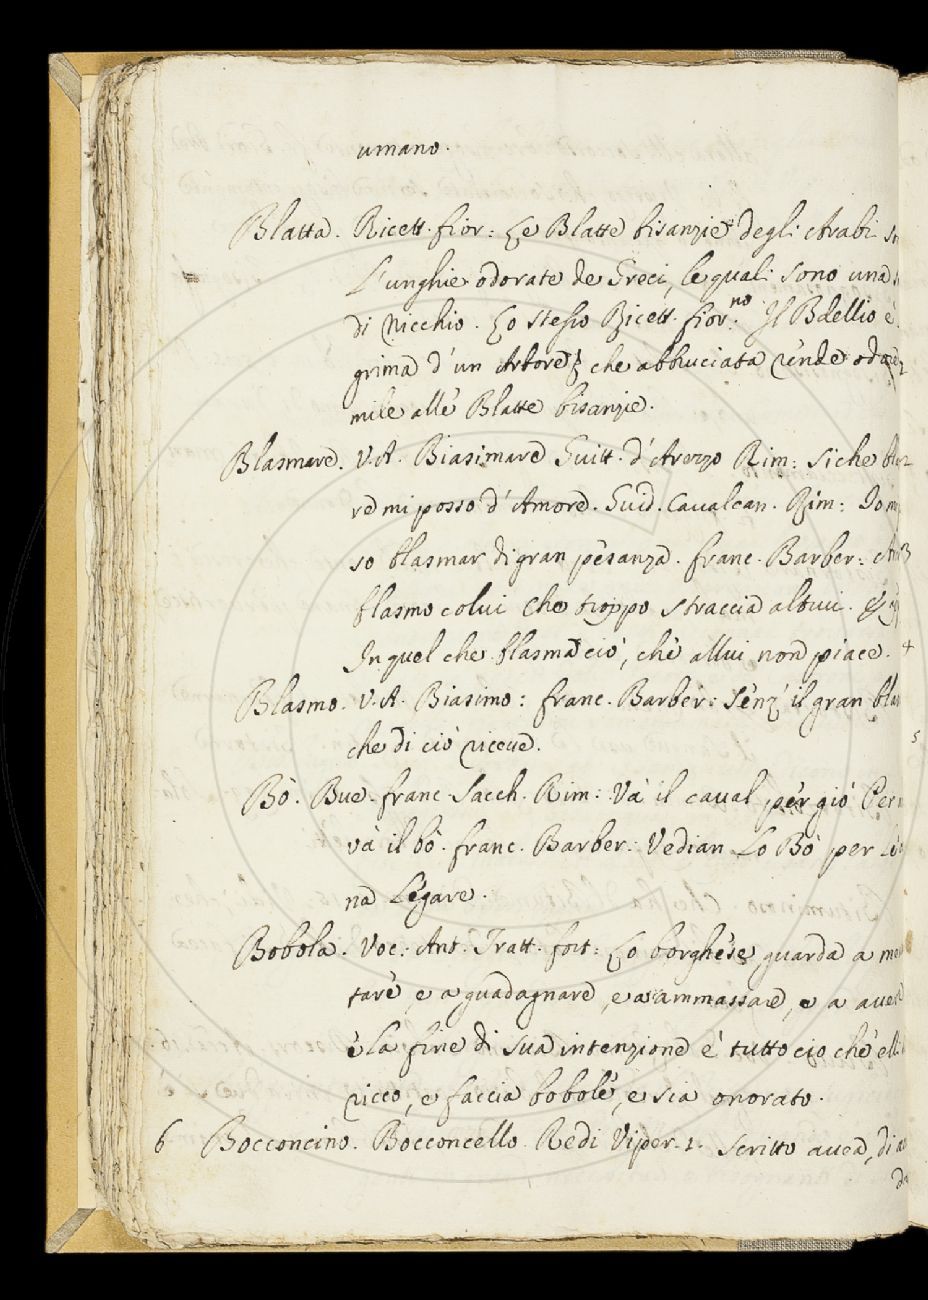 umano.
Blatta. Ricett. fior: Le Blatte bisanzie degli Arabi
L'unghie odorate de Greci, le quali sono una
di Nicchio. Lo stesso Ricett. fior. no Il Bdellio è
grima d'un Arbore che abbruciata rende
mile alle Blatte bisanzie.
Blasmare. V.A. Biasimare Guitt. d'Arezzo Rim: Siche
re mi posso d'Amore. Guid. Cavalcan. Rim: Io
so blasmar di gran pesanza. franc. Barber:
blasmo colui che troppo straccia altrui.
In quel che blasma ciò, che allui non piace. 4
Blasmo. V.A. Biasimo: franc. Barber: Senz' il gran
che di ciò riceve. 5
Bò. Bue. franc. Sacch. Rim: Và il caval per giò
và il bò. franc. Barber: Vedian Lo Bò per
na Legare.
Bobola. Voc: Ant. Tratt. fort: Lo borghese guarda a
tare e a guadagnare, e a ammassare, e a
è la fine di sua intenzione è tutto cio che
ricco, e faccia bobole, e sia onorato.
6 Bocconcino. Bocconcello Redi Viper. 1. Scritto avea, di